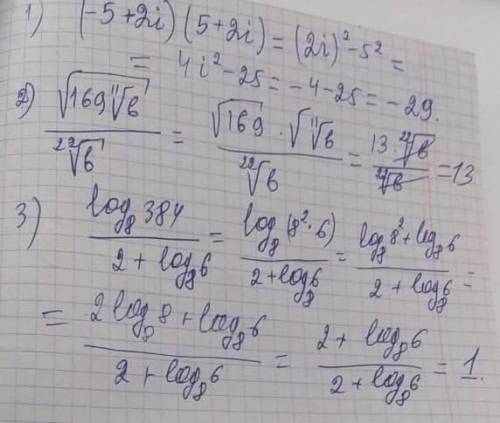 1) (-5+2i)(5+2i) = (2i)² - 5² =
= 4i² - 25 = -4 - 25 = -29.
2) √(169 ¹¹√b) / ²²√b = √169 · √(¹¹√b) / ²²√b = 13 · ²²√b / ²²√b = 13
3) log₈ 384 / (2 + log₈ 6) = log₈ (8² · 6) / (2 + log₈ 6) = (log₈ 8² + log₈ 6) / (2 + log₈ 6) =
= (2 log₈ 8 + log₈ 6) / (2 + log₈ 6) = (2 + log₈ 6) / (2 + log₈ 6) = 1.